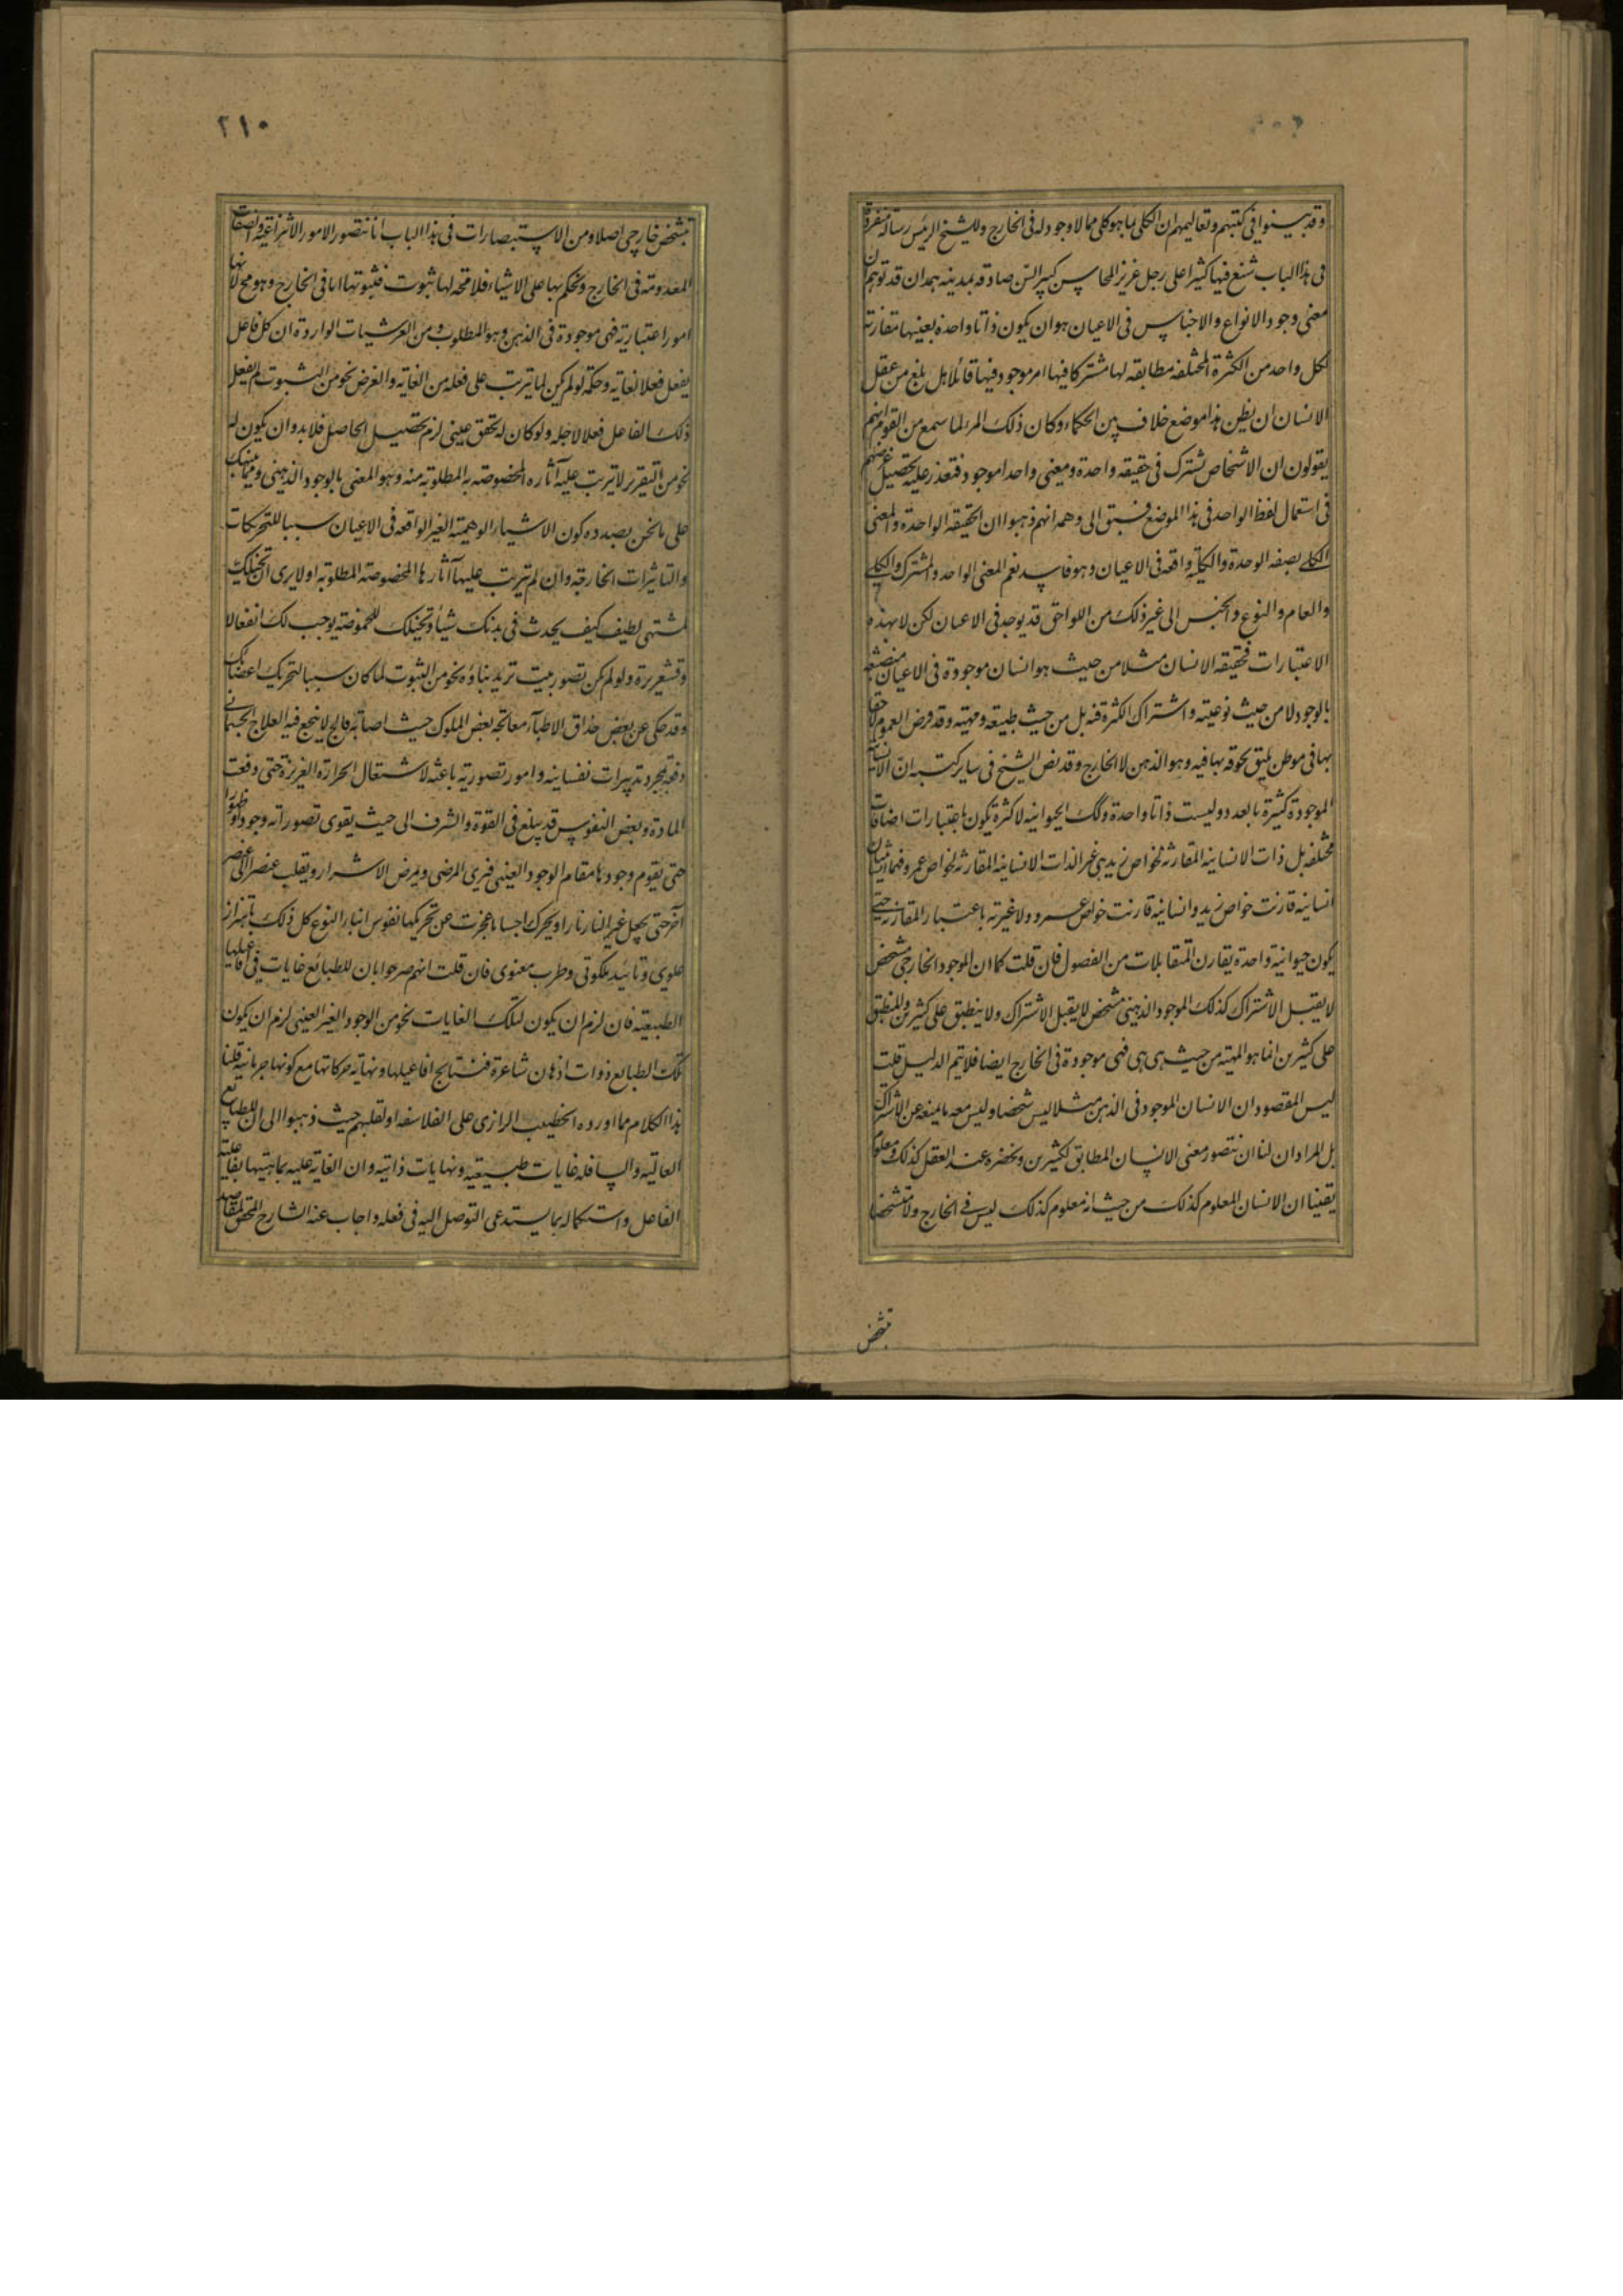 وقد بينوا فى كتبهم وتعاليمهم ان الكلى بما هو كلى مما لا وجود له فى الخارج وللشيخ الرئيس رسالة منفردة
فى هذا الباب شنع فيها كثيرا على رجل غزير المحاسن كبير السن صادفه بمدينة همدان قد توهم ان
معنى وجود الانواع والاجناس فى الاعيان هو ان يكون ذاتا واحدة بعينها مقارنة
لكل واحد من الكثرة المختلفة مطابقه لها مشتركا فيها امر موجود فيها قائلا هل بلغ من عقل
الانسان ان يظن هذا موضع خلاف بين الحكماء وكان ذلك المرء لما سمع من القوم انهم
يقولون ان الاشخاص تشترك فى حقيقه واحدة ومعنى واحدا موجود فتعذر عليه تحصيل غرضهم
فى استعمال لفظ الواحد فى هذا الموضع فسبق الى وهمه انهم ذهبوا ان الحقيقه الواحدة والمعنى
الكلى بصفه الوحدة والكليه واقعه فى الاعيان وهو فاسد نعم المعنى الواحد والمشترك والكلى
والعام والنوع والجنس الى غير ذلك من اللواحق قد يوجد فى الاعيان لكن لا بهذه
الاعتبارات فحقيقه الانسان مثلا من حيث هو انسان موجودة فى الاعيان منصبغه
بالوجود لا من حيث نوعيته واشتراك الكثرة فيه بل من حيث طبيعته ومهيته وقد فرض العموم لاحقا
بها فى موطن يليق لحوقه بها فيه وهو الذهن لا الخارج وقد نص الشيخ فى ساير كتبه ان الانسانية
الموجودة كثيرة بالعدد وليست ذاتا واحدة وكك الحيوانيه لا كثرة يكون باعتبارات اضافات
مختلفه بل ذات الانسانيه المقارنه لخواص زيد هى غير الذات الانسانيه المقارنه لخواص عمرو فهما شيئان
انسانيه قارنت خواص زيد وانسانيه قارنت خواص عمرو ولا غيرية باعتبار المقارنه حتى
يكون حيوانيه واحدة يقارن المتقابلات من الفصول فان قلت كما ان الموجود الخارجى مشخص
لا يقبل الاشتراك كذلك الموجود الذهنى مشخص لا يقبل الاشتراك ولا ينطبق على كثيرين والمنطبق
على كثيرين انما هو المهيته من حيث هى هى فهى موجودة فى الخارج ايضا فلا يتم الدليل قلت
ليس المقصود ان الانسان الموجود فى الذهن مثلا ليس شخصا وليس معه ما يمنعه عن الاشتراك
بل المراد ان لنا ان نتصور معنى الانسان المطابق لكثيرين ونحضره عند العقل كذلك ومعلوم
يقينا ان الانسان المعلوم كذلك من حيث انه معلوم كذلك ليس فى الخارج ولا متشخصا
بتشخص
٢١٠
بتشخص خارجى اصلا ومن الاستبصارات فى هذا الباب انا نتصور الامور الانتزاعية والصفات
المعدومته فى الخارج ونحكم بها على الاشياء فلا محة لها ثبوت فثبوتها اما فى الخارج وهو مح لانها
امور اعتباريته فهى موجودة فى الذهن وهو المطلوب ومن العرشيات الواردة ان كل فاعل
يفعل فعلا لغايته وحكمة لو لم يكن لما يترتب على فعله من الغايه والغرض نحو من الثبوت لم يفعل
ذلك الفاعل فعلا لاجله ولو كان له تحقق عينى لزم تحصيل الحاصل فلا بد وان يكون له
نحو من التقرر لا يترتب عليه آثاره المخصوصته به المطلوبة منه وهو المعنى بالوجود الذهنى ومما ينبهك
على ما نحن بصدده كون الاشياء الوهمية الغير الواقعه فى الاعيان سببا للتحريكات
والتاثيرات الخارجيه وان لم يترتب عليها آثارها المخصوصته المطلوبة اولا يرى ان تخيلك
لمشتهى لطيف كيف يحدث فى بدنك شيأ وتخيلك للحموضة يوجب لك انفعالا
وقشعريرة ولو لم يكن تصور بيت تريد بناؤه نحو من الثبوت لما كان سببا لتحريك اعضائك
وقد حكى عن بعض حذاق الاطباء معالجة بعض الملوك حيث اصابه فالج لا ينجع فيه العلاج الجسمانى
دفعه بمجرد تدبيرات نفسانيه وامور تصوريه باعثه لاشتعال الحرارة الغريزة حتى دفعت
المادة وبعض النفوس قد يبلغ فى القوة والشرف الى حيث يقوى تصوراته وجودا وظهورا
حتى يقوم وجودها مقام الوجود العينى فيرى المرضى ويمرض الاشرار ويقلب عنصرا الى عنصر
آخر حتى يجعل غير النار نارا ويحرك اجساما عجزت عن تحريكها نفوس ابناء النوع كل ذلك باهتزاز
علوى وتائيد ملكوتى وطرب معنوى فان قلت انهم صرحوا بان للطبائع غايات فى افاعيلها
الطبيعيته فان لزم ان يكون لتلك الغايات نحو من الوجود الغير العينى لزم ان يكون
تلك الطبايع ذوات اذهان شاعرة فنتايج افاعيلها ونهاية حركاتها مع كونها جرمانية قلنا
هذا الكلام مما اورده الخطيب الرازى على الفلاسفه او لقلبهم حيث ذهبوا الى ان للطبايع
العاليه والسافله غايات طبيعيه ونهايات ذاتيه وان الغاية عليه بماهيتها لفاعلية
الفاعل واستكماله بما يستدعى التوصل اليه فى فعله واجاب عنه الشارح المحقق لمقاصد